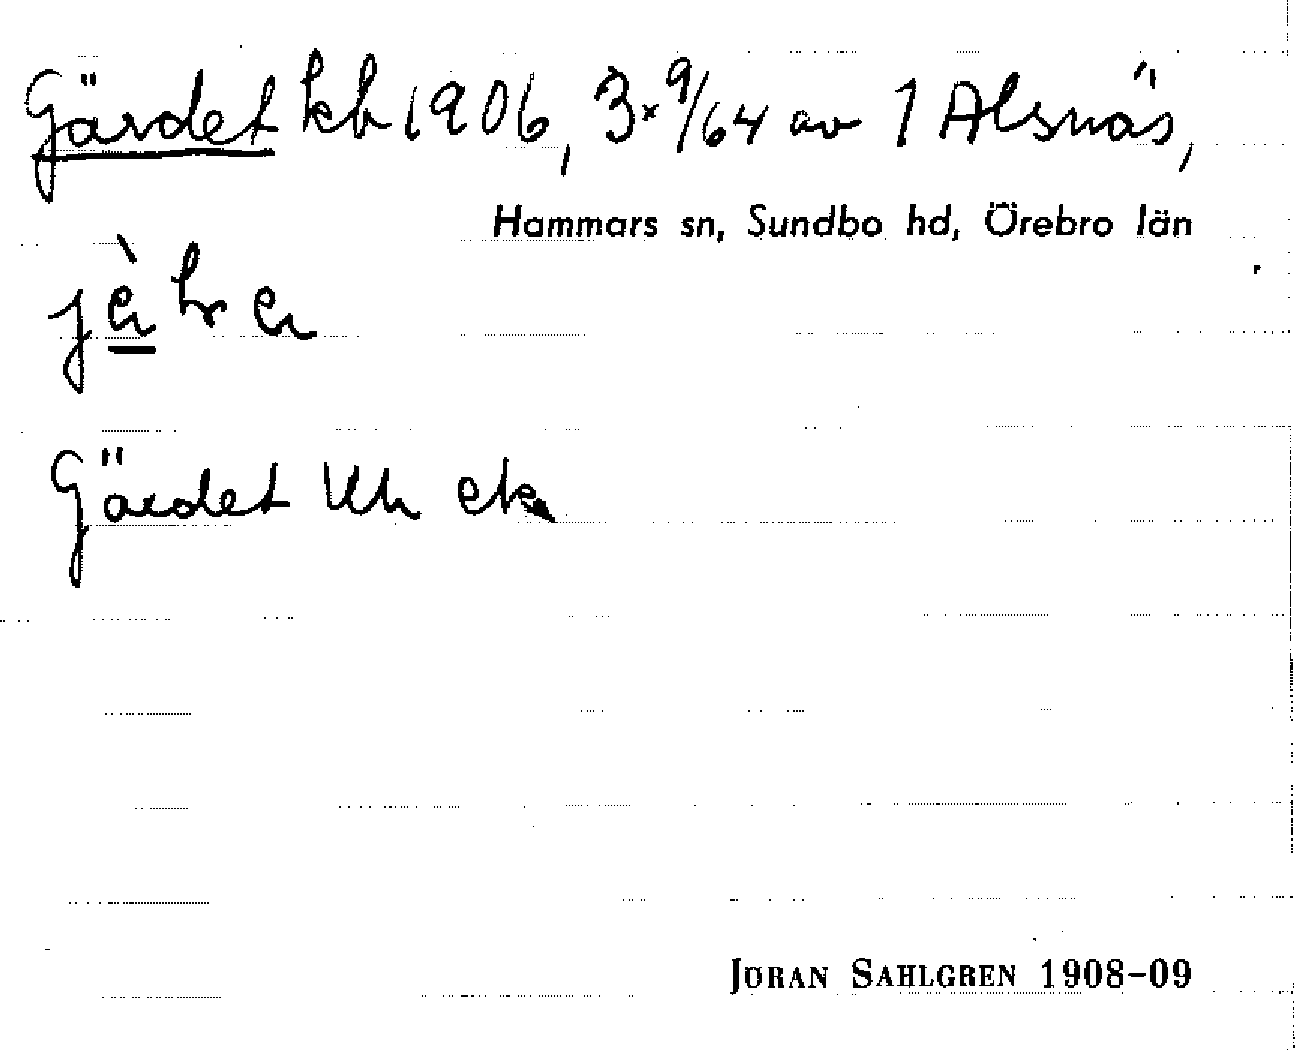 Gärdet kb 1906, 3 × 9/64 av 1 Alsnäs,
Hammars sn, Sundbo hd, Örebro län
Gärdet
JÖRAN SAHLGREN 1908-09